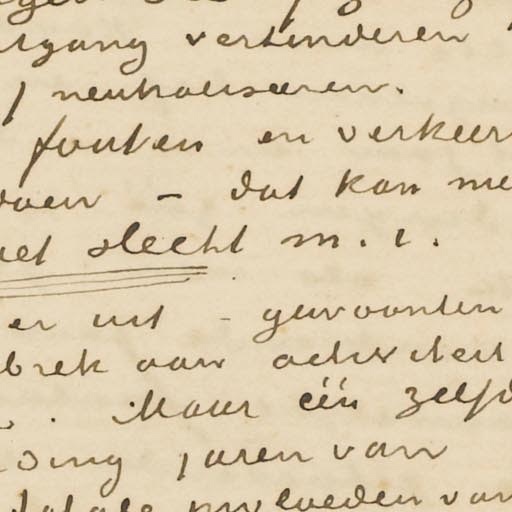 verhinderen
neutraliseren.
fouten en verkeer
doen – dat kan me
et slecht m. i.
er uit – gewoonten
brek aan activiteit
. Maar één zelfd
jaren van
invloeden van